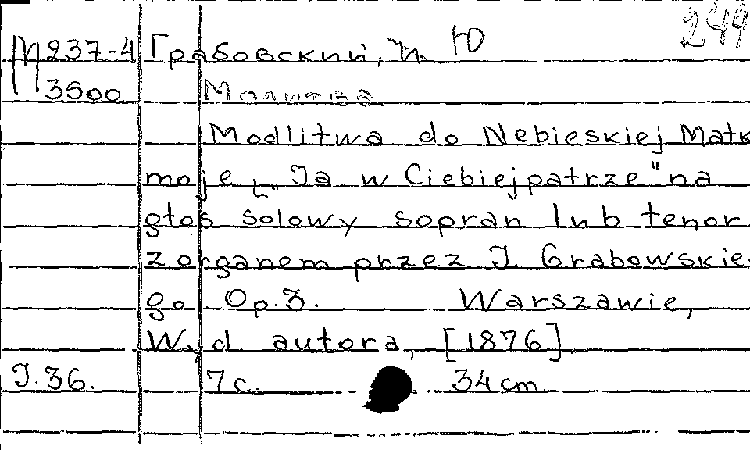 249
М237-4 Грабовский, Ю
3500 Молитва
Modlitwa do Nebieskiej Matk
moje „Ja w Ciebie patrze" na
głos solowy sopran lub tenor
z organem przez J. Grabowskie-
go. Op. 3. Warszawie,
Wyd. autora, [1876]
J. 36. 7 с. 34 cm